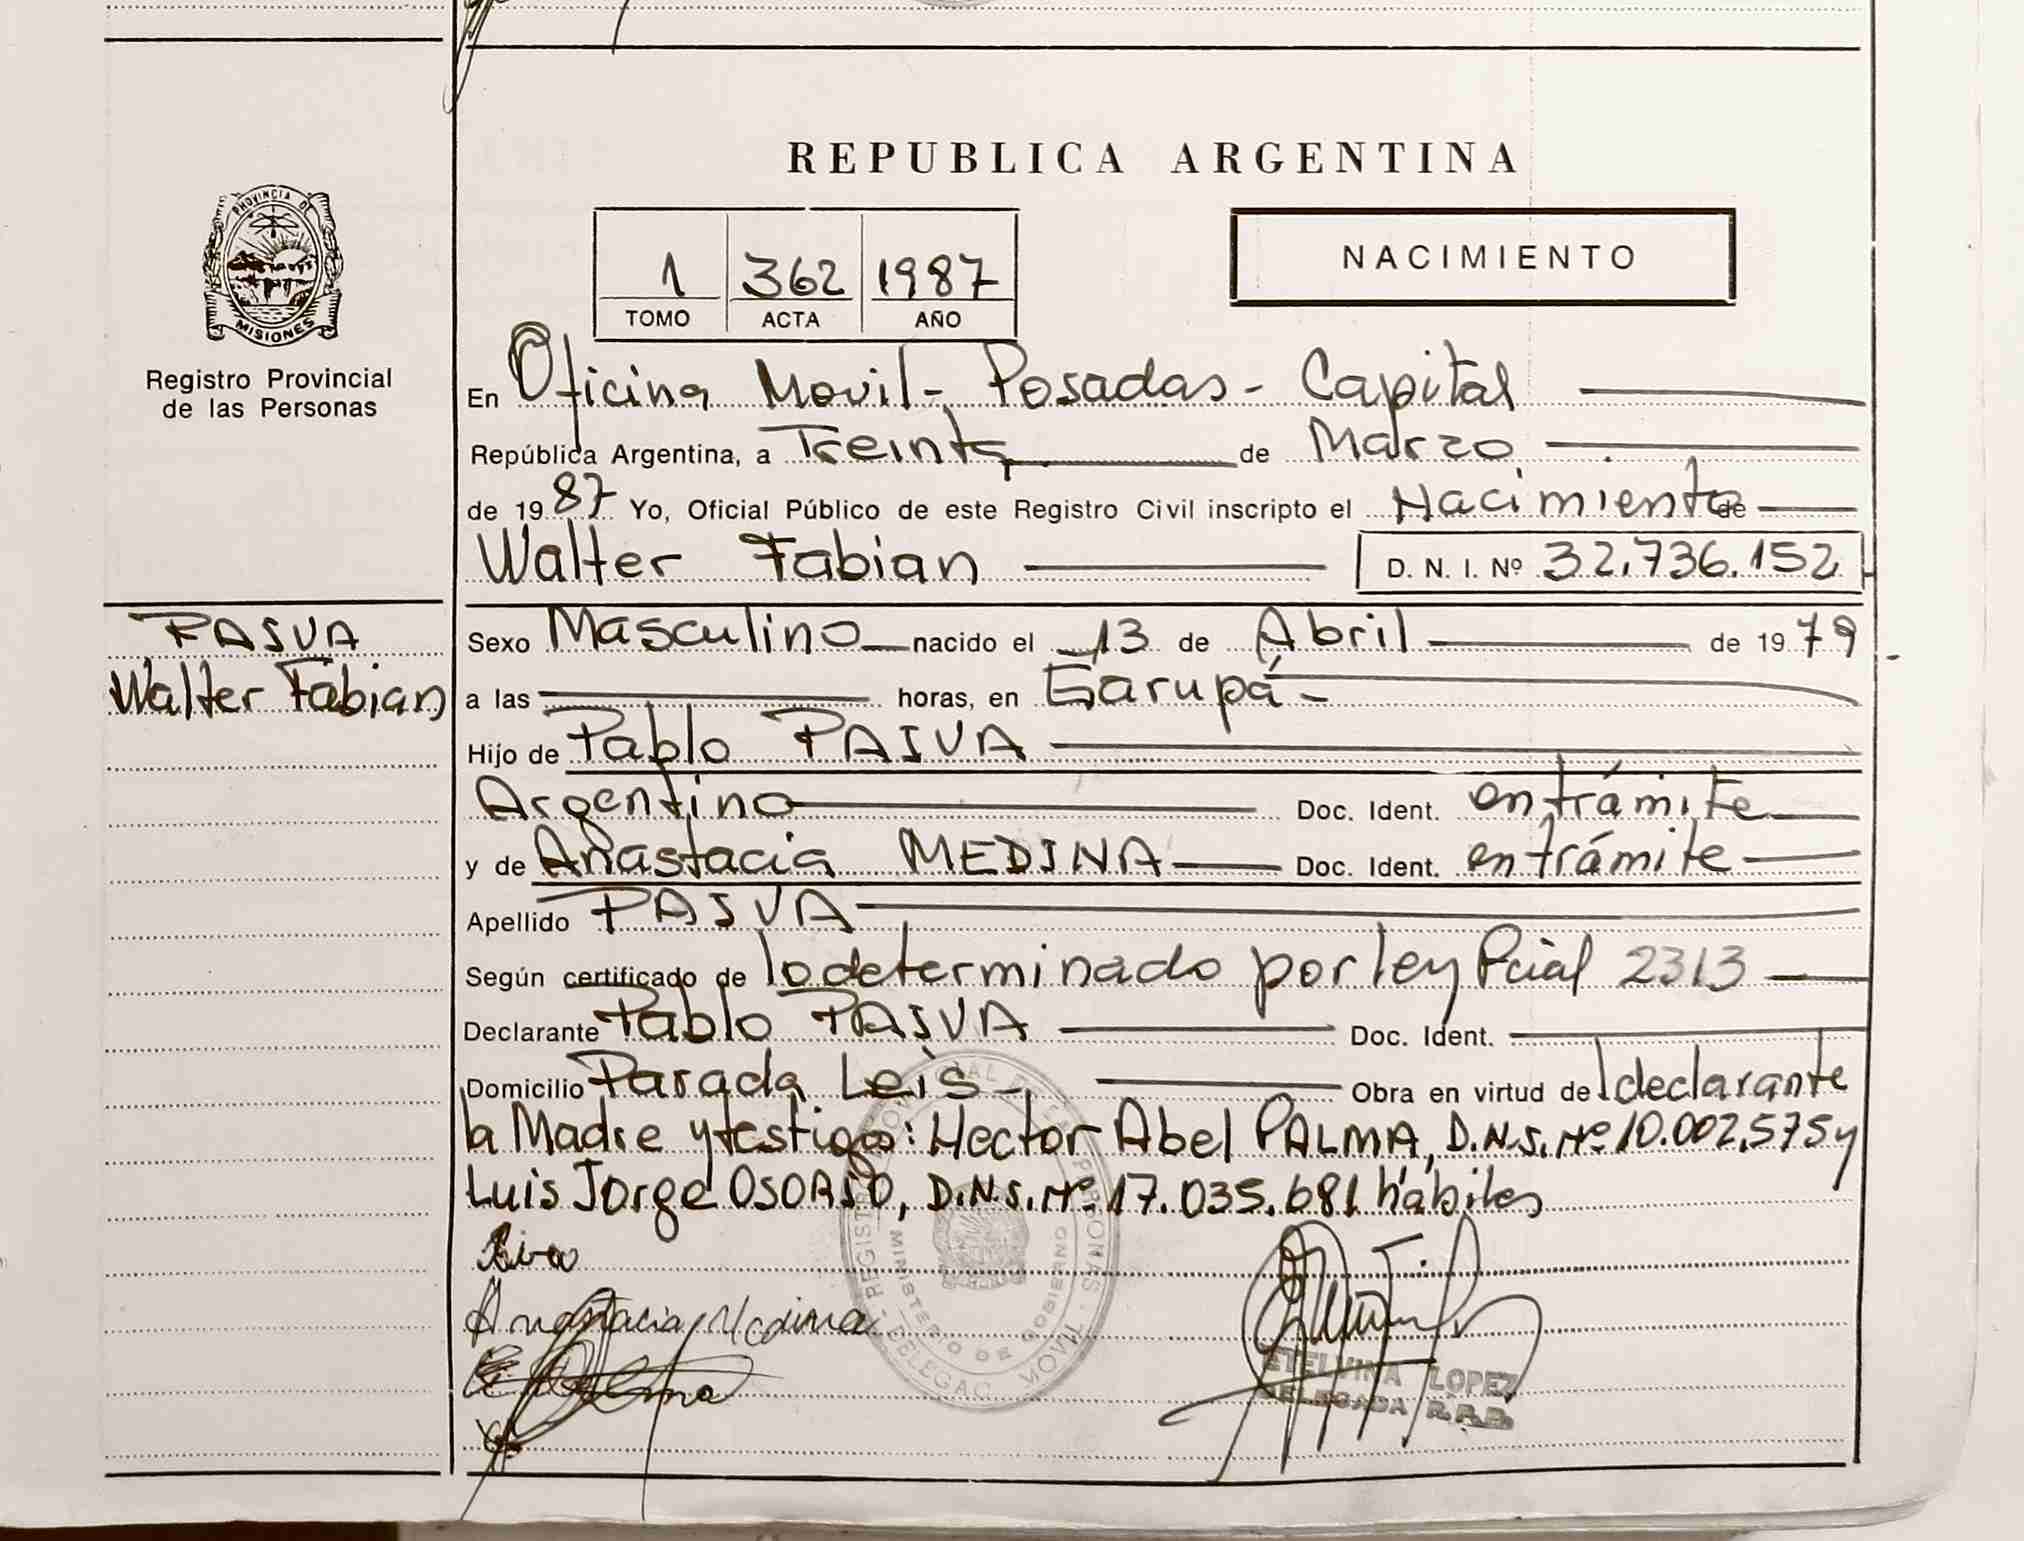 REPUBLICA ARGENTINA
PROVINCIA DE
MISIONES
Registro Provincial
de las Personas
1 362 1987
TOMO ACTA AÑO
NACIMIENTO
En Oficina Movil - Posadas - Capital
República Argentina, a Treinta de Marzo
de 1987 Yo, Oficial Público de este Registro Civil inscripto el Nacimiento de
Walter Fabian D. N. I. Nº 32.736.152
PAIVA
Walter Fabian
Sexo Masculino nacido el 13 de Abril de 1979
a las horas, en Garupá -
Hijo de Pablo PAIVA
Argentino Doc. Ident. en trámite
y de Anastacia MEDINA Doc. Ident. en trámite
Apellido PAIVA
Según certificado de lo determinado por ley Pcial 2313
Declarante Pablo PAIVA Doc. Ident.
Domicilio Parada Leis - Obra en virtud de declarante
la Madre y testigos: Hector Abel PALMA, D.N.I. Nº 10.002.575 y
Luis Jorge OSORIO, D.N.I. Nº 17.035.681 hábiles
Anastacia Medina
MINISTERIO DE GOBIERNO
ETELVINA LOPEZ
DELEGADA R.P.P.